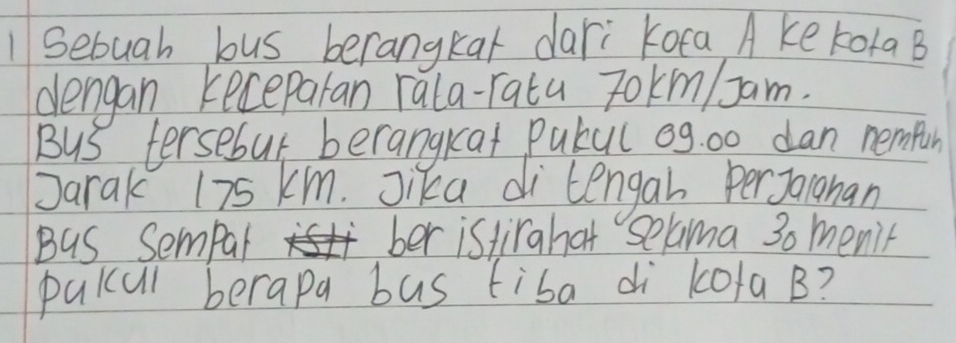 1 Sebuah bus berangkat dari kota A ke kota B
dengan kecepatan rata-rata 70 km/Jam.
Bus tersebut berangkat Pukul 09.00 dan nempuh
Jarak 175 km. Jika di tengah perjalanan
Bus Sempat isti ber istirahat selama 30 menit
pukul berapa bus tiba di kota B?